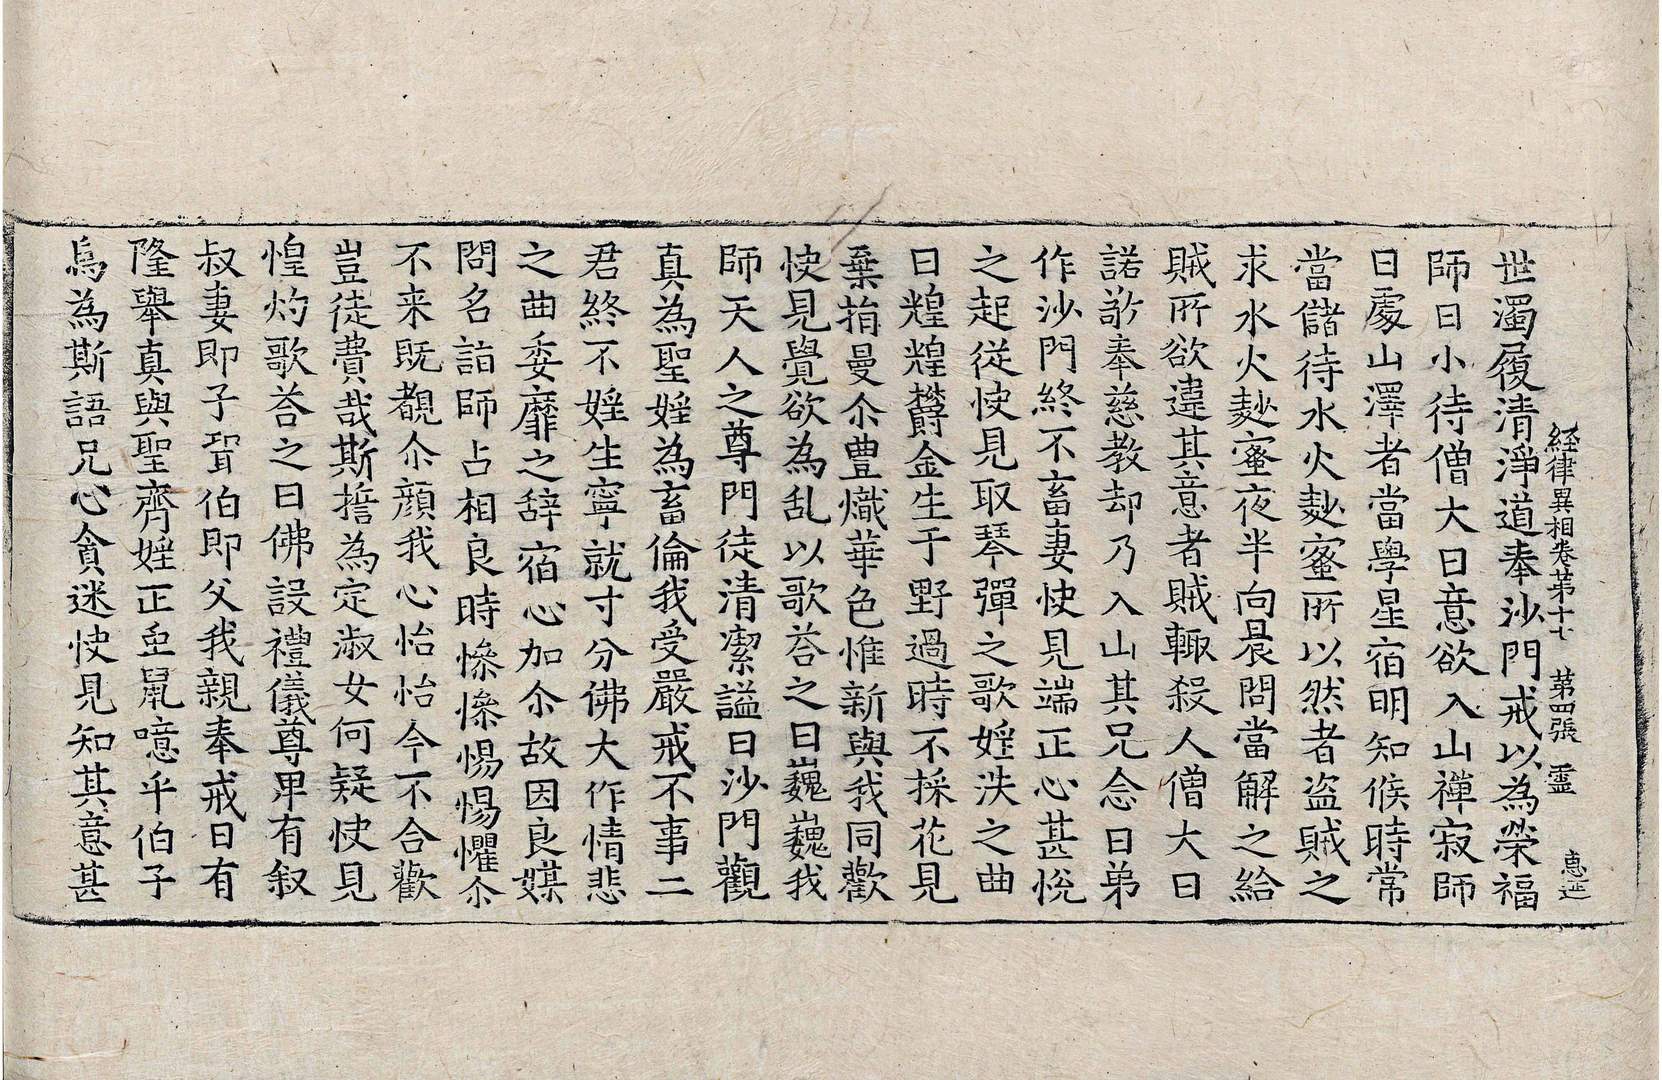 経律異相卷第十七 第四張 靈 惠延
世濁履清淨道奉沙門戒以為榮福
師曰小待僧大曰意欲入山禪寂師
曰處山澤者當學星宿明知候時常
當儲待水火麨蜜所以然者盜賊之
求水火麨蜜夜半向晨問當解之給
賊所欲違其意者賊輙殺人僧大曰
諾敬奉慈教却乃入山其兄念曰弟
作沙門終不畜妻快見端正心甚悅
之起從快見取琴彈之歌婬泆之曲
曰煌煌欝金生于野過時不採花見
棄捐曼尒豊熾華色惟新與我同歡
快見覺欲為乱以歌荅之曰巍巍我
師天人之尊門徒清潔謚曰沙門觀
真為聖婬為畜倫我受嚴戒不事二
君終不婬生寧就寸分佛大作情悲
之曲委靡之辞宿心加尒故因良媒
問名詣師占相良時慘慘惕惕懼尒
不来既覩尒顔我心怡怡今不合歡
豈徒費哉斯誓為定淑女何疑快見
惶灼歌荅之曰佛設禮儀尊卑有叙
叔妻即子聟伯即父我親奉戒日有
隆舉真與聖齊婬正䖝鼠噫乎伯子
烏為斯語兄心貪迷快見知其意甚